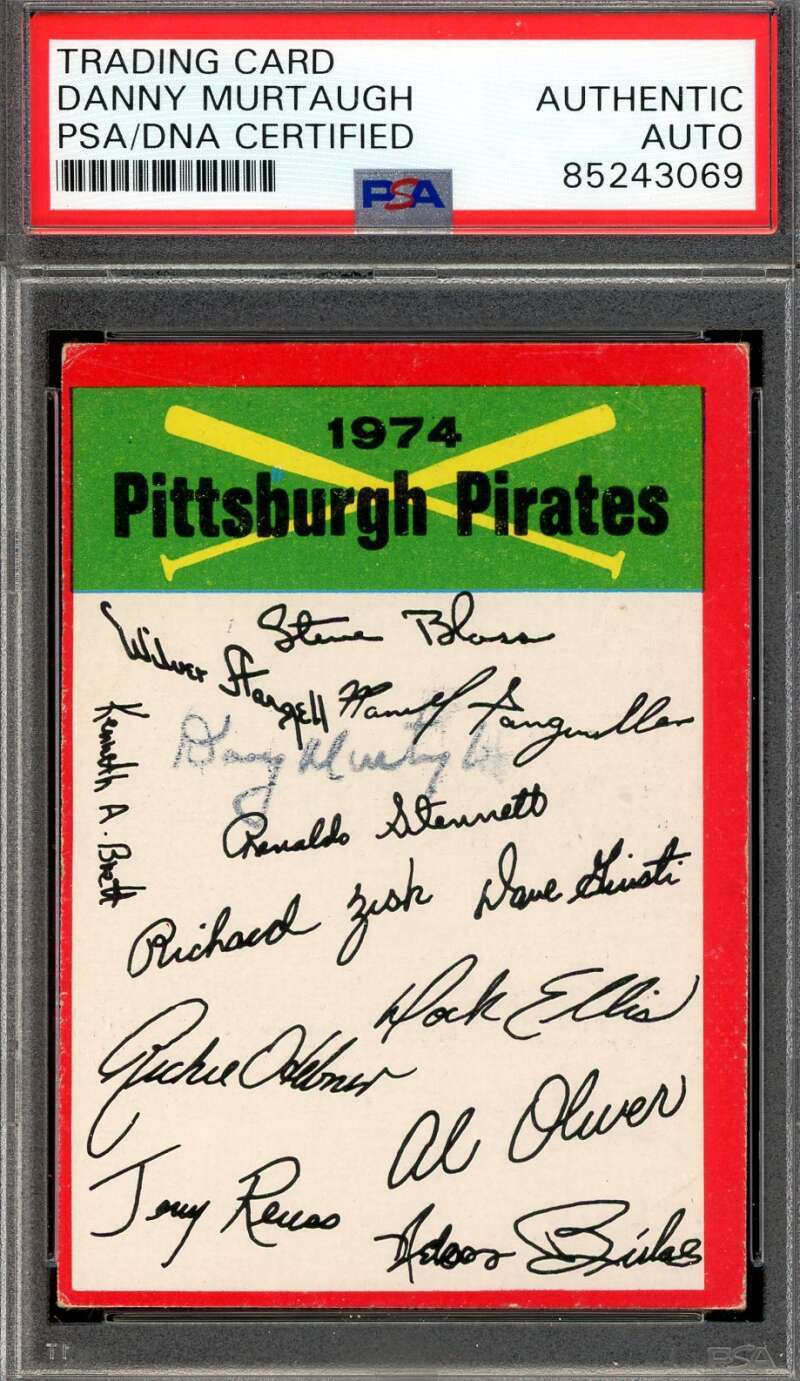 TRADING CARD
DANNY MURTAUGH
PSA/DNA CERTIFIED
AUTHENTIC
AUTO
85243069
PSA
1974
Pittsburgh Pirates
Steve Blass
Wilver Stargell
Manuel Sanguillen
Kenneth A. Brett
Danny Murtaugh
Renaldo Stennett
Richard Zisk
Dave Giusti
Dock Ellis
Richie Hebner
Al Oliver
Jerry Reuss
Nelson Briles
PSA